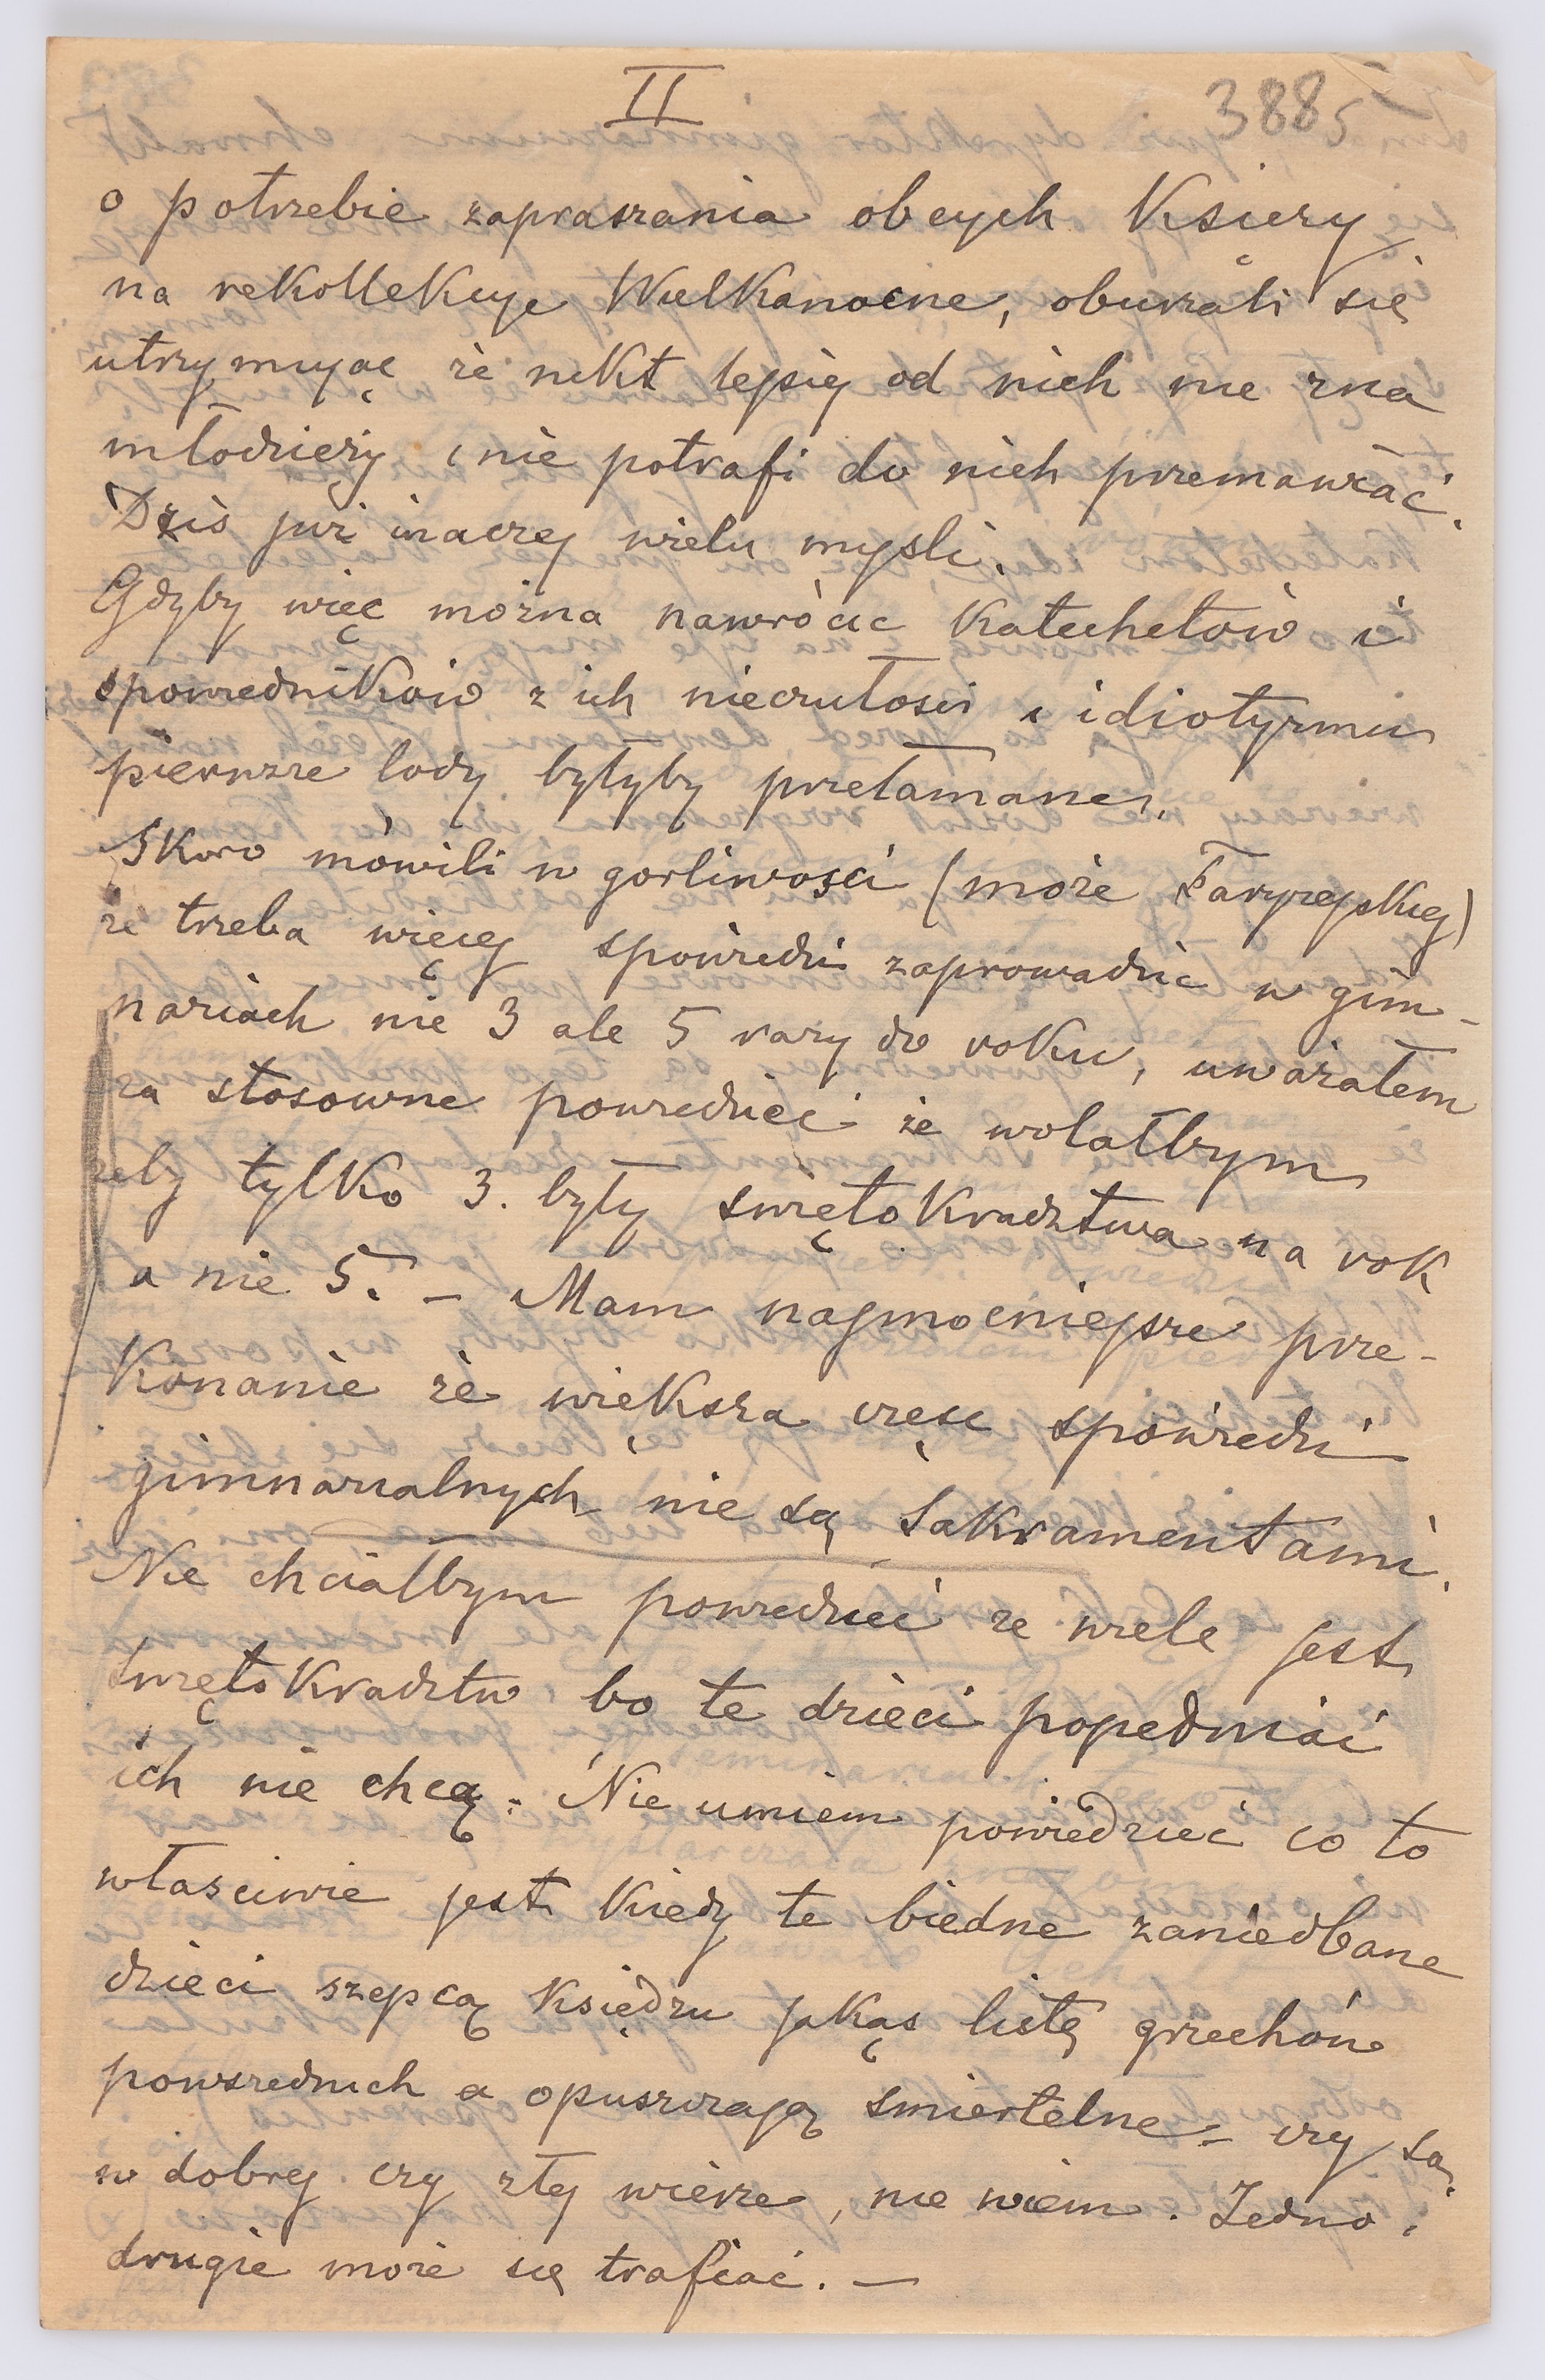 II
3885
o potrzebie zapraszania obcych Księży
na rekollekcye Wielkanocne, oburzali się
utrzymując że nikt lepiej od nich nie zna
młodzieży i nie potrafi do nich przemawiać.
Dziś już inaczej wielu myśli.
Gdyby więc można nawrócić Katechetów i
spowiedników z ich nieczułości i idiotyzmu
pierwsze lody byłyby przełamane.
Skoro mówili w gorliwości (może Faryzejskiej)
że trzeba więcej spowiedzi zaprowadzić w gim-
naziach nie 3 ale 5 razy do roku, uważałem
za stosowne powiedzieć że wolałbym
żeby tylko 3. były świętokradztwa na rok
a nie 5. – Mam najmocniejsze prze-
konanie że większa część spowiedzi
gimnazialnych nie są Sakramentami.
Nie chciałbym powiedzieć że wiele jest
świętokradztw bo te dzieci popełniać
ich nie chcą. Nie umiem powiedzieć co to
właściwie jest kiedy te biedne zaniedbane
dzieci szepcą księdzu jakąś listę grzechów
powszednich a opuszczają śmiertelne – czy są
w dobrej czy złej wierze, nie wiem. Jedno i
drugie może się trafiać. —